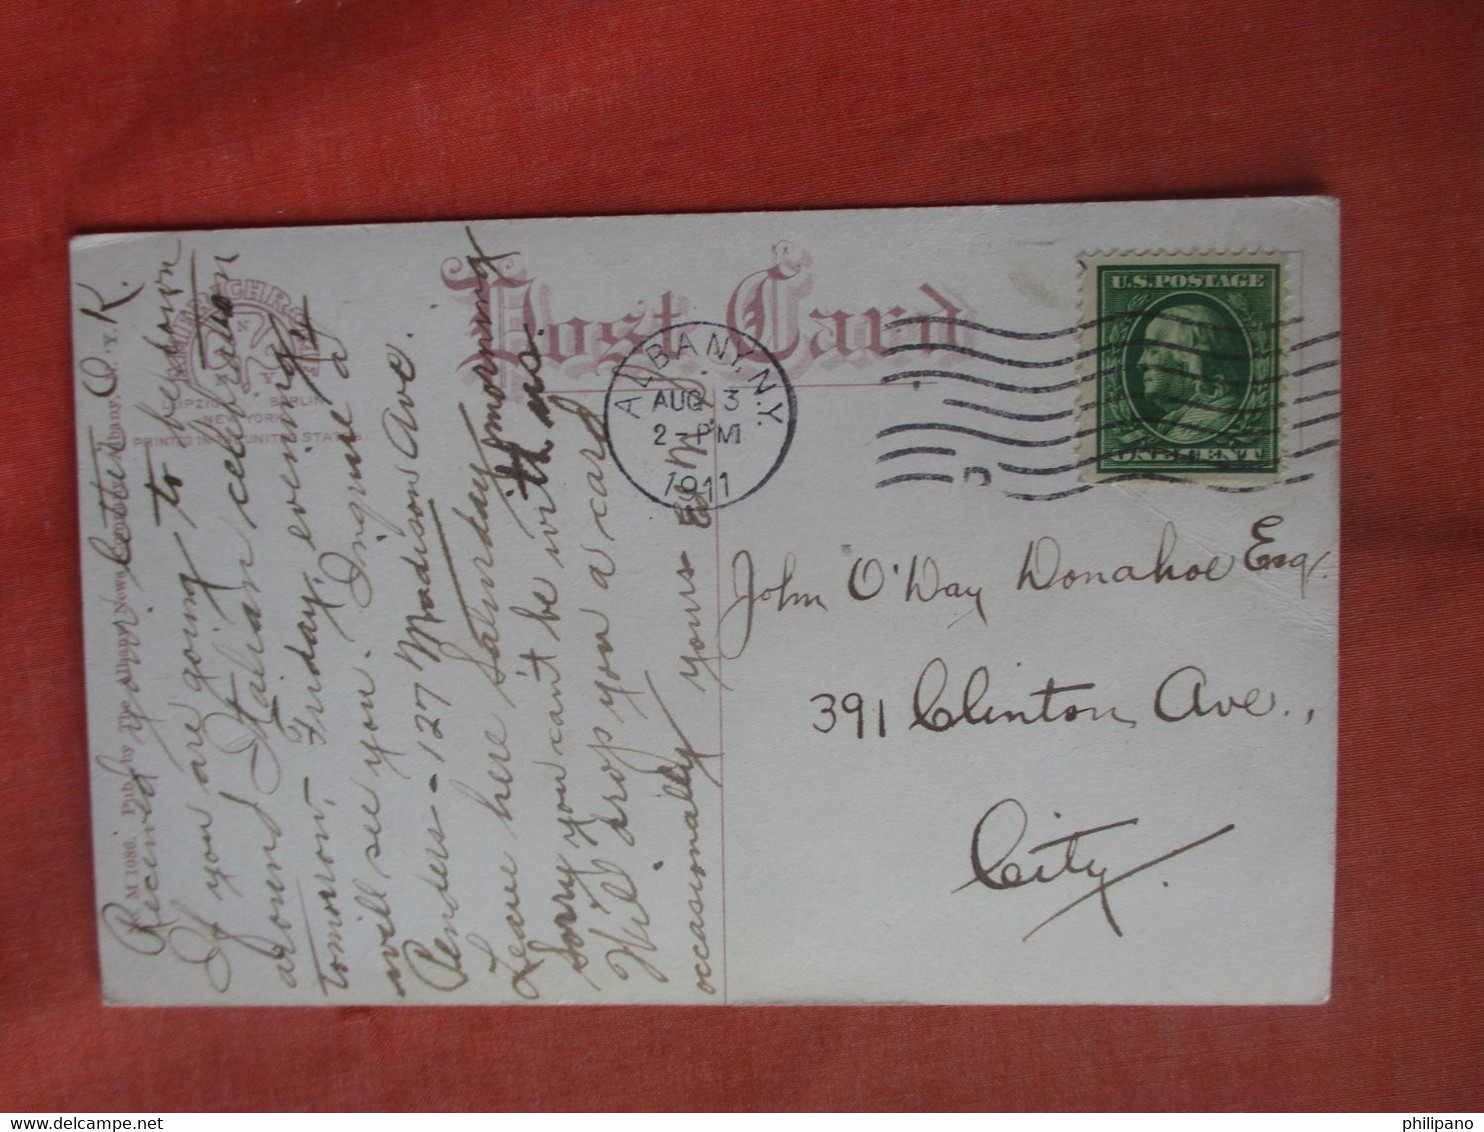 Post Card
U.S. POSTAGE
ONE CENT
ALBANY, N.Y.
AUG 3
2-PM
1911
John O'Day Donahoe Esq.
391 Clinton Ave.,
City.
Received your letter O.K.
If you are going to be down
around Italian celebration
tomorrow, Friday, evening
will see you. Inquire at
Penders - 127 Madison Ave.
Leave here Saturday morning
Sorry you can't be with us.
Will drop you a card
occasionally yours
M 1086. Pub. by The Albany News Albany, N. Y.
LEIPZIG BERLIN
NEW YORK
PRINTED IN UNITED STATES.
philipano
delcampe.net